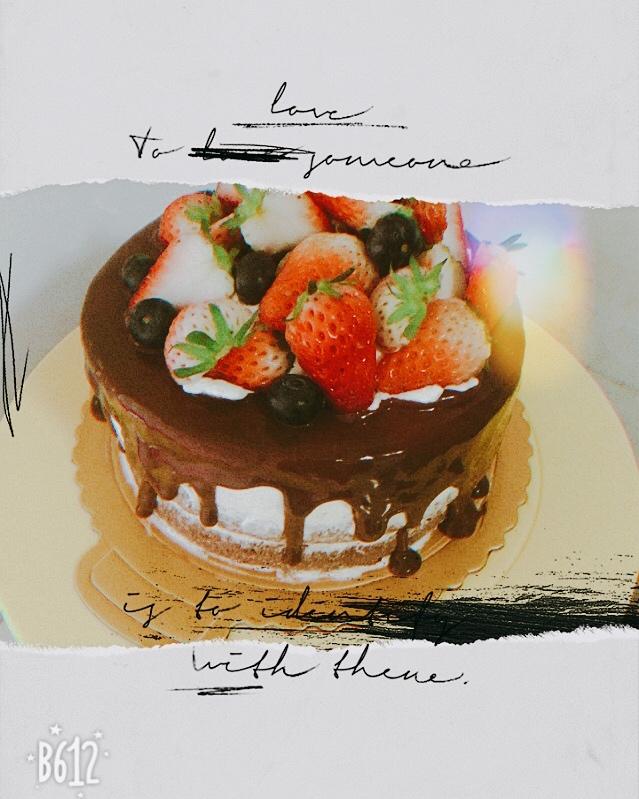 love
to someone
is to identify
with theue.
B612